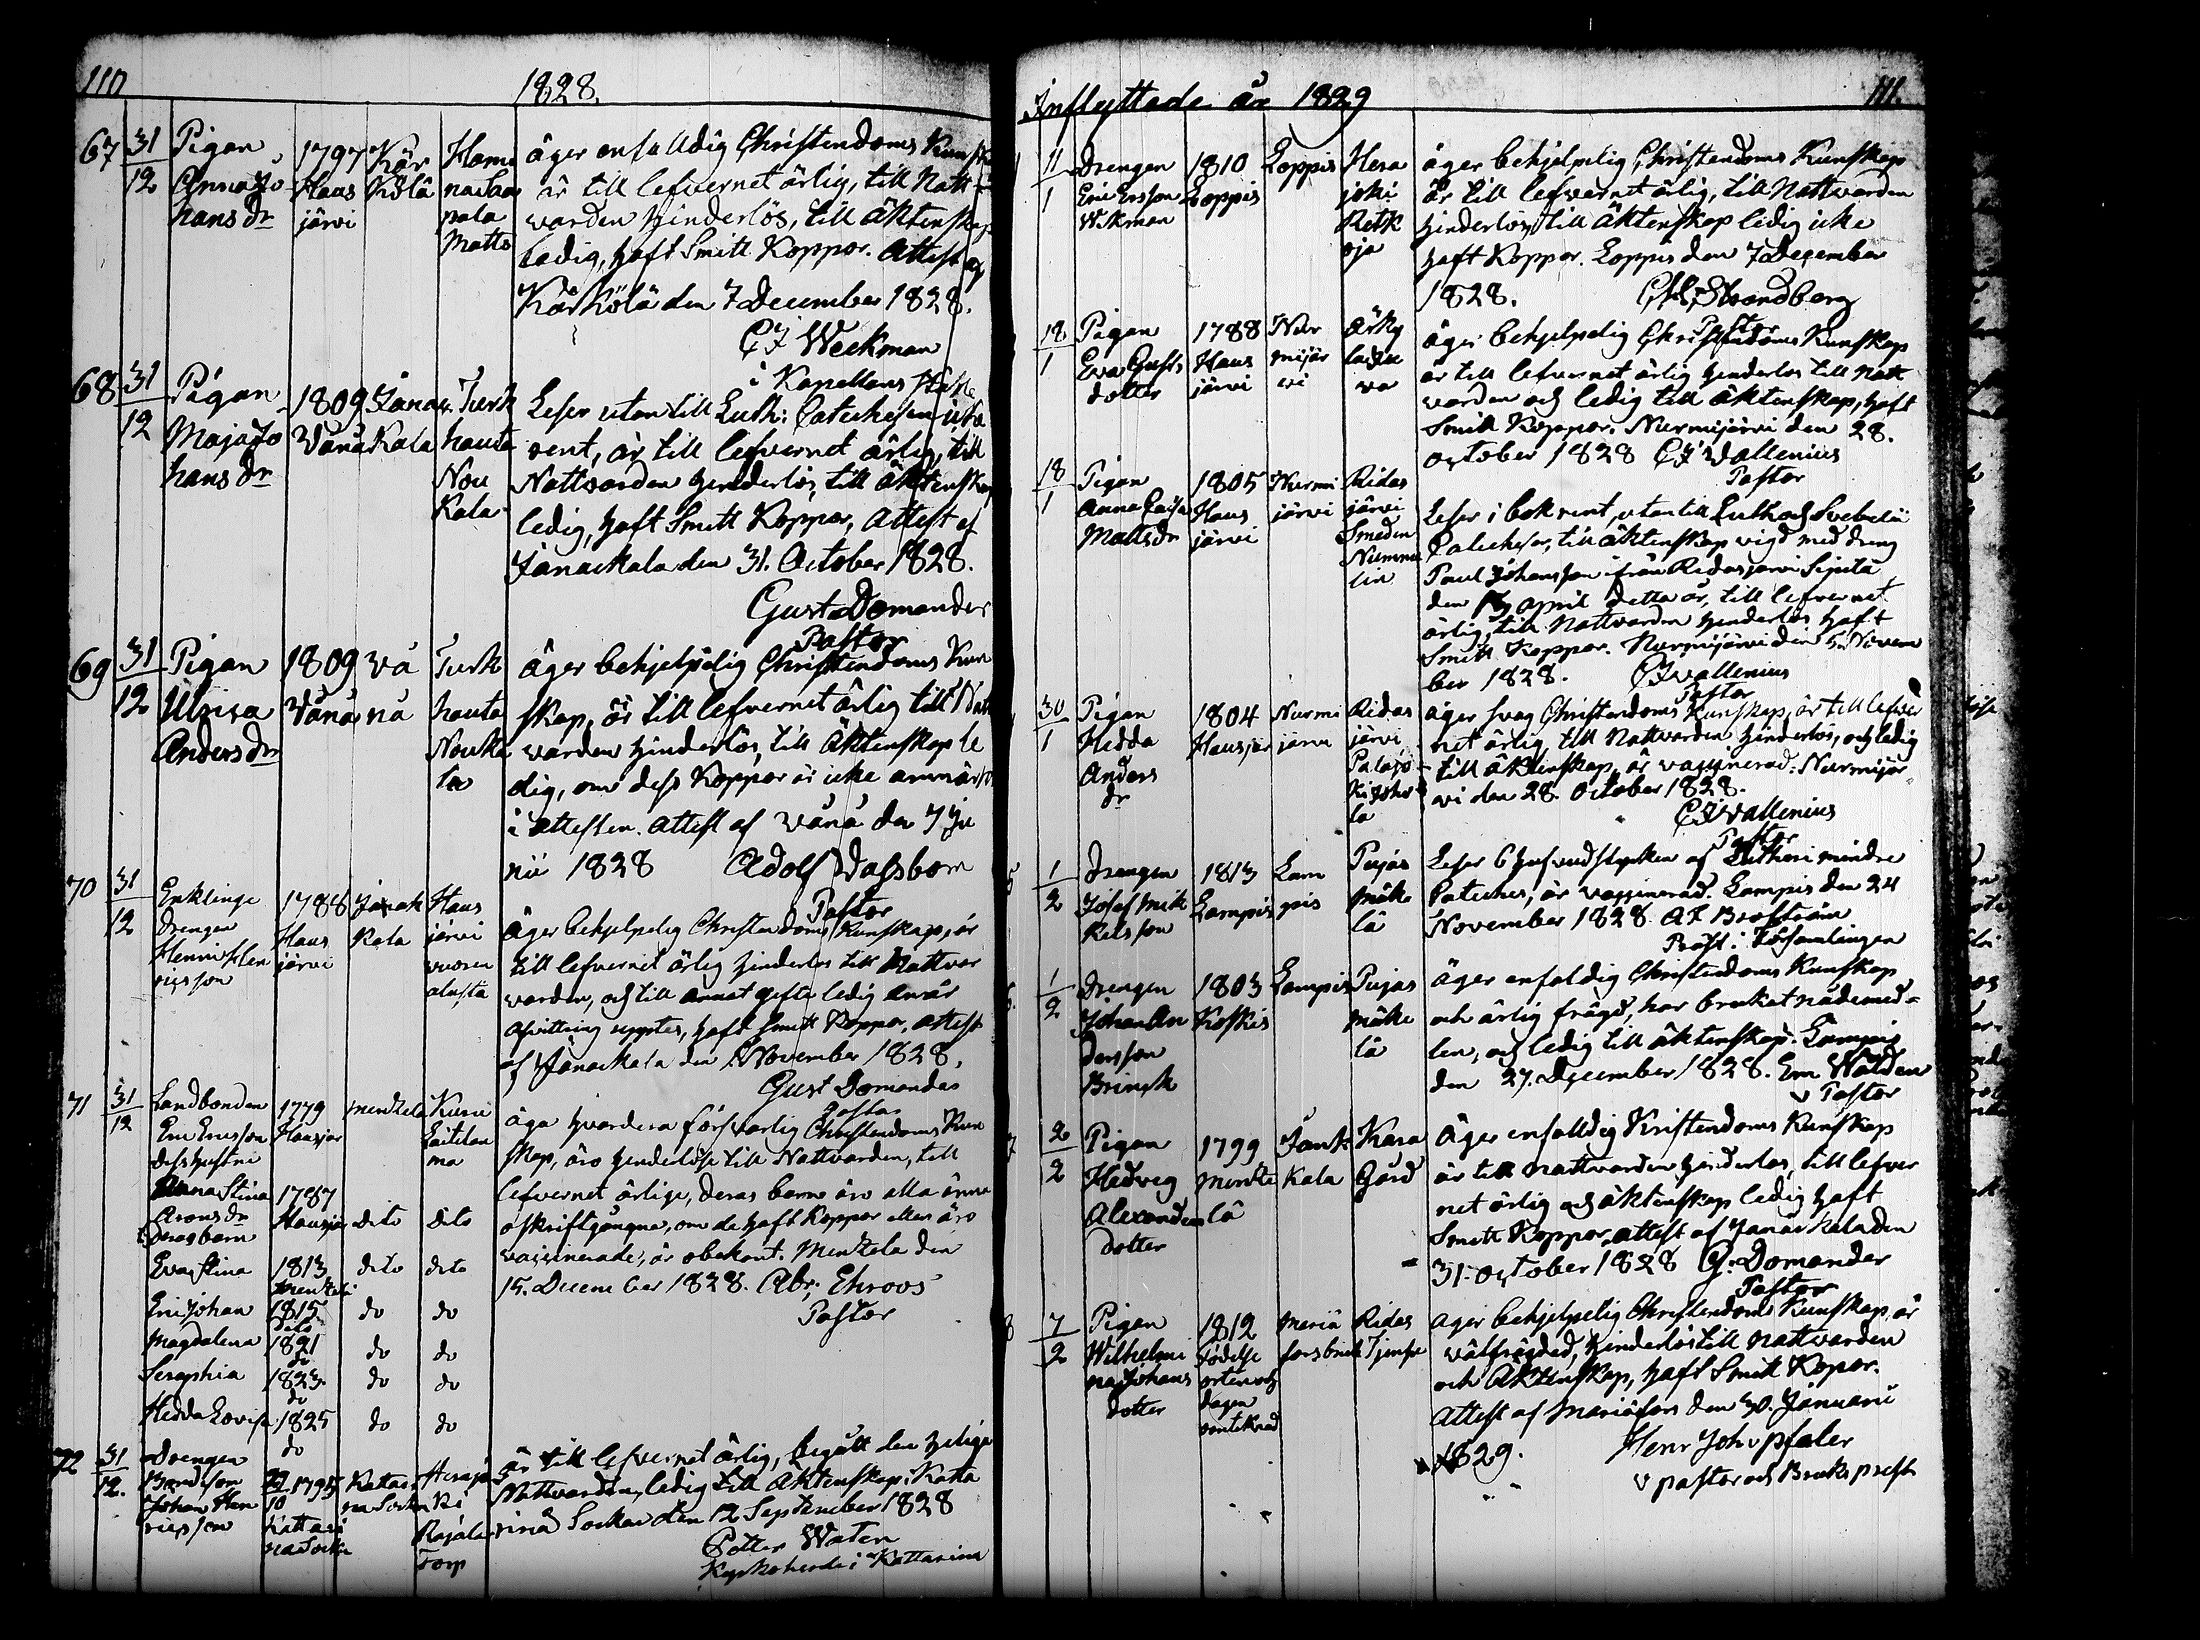 110
1828.
67 31/12 Pigan Anna Jo hans dr
1797 Haus järvi
Kär kölä
Hami na Saa pala Matts
äger enfalldig Christendoms Kunsk
är till lefvernet ärlig, till Natt
varden hinderlös, till äktenskap
ledig, haft Smitt Koppor. Attest af
Kärkölä den 7 December 1828.
CJ Weckman
i Kapellans ställe
68 31/12 Pigan Maja Jo hans dr
1809 Vånå
Janak Kala
Turk hauta Nou Kala
Läser utan till Luth: Catechesen
rent, är till lefvernet ärlig, till
Nattvarden hinderlös, till äktenskap
ledig, haft Smitt Koppor, Attest af
Janackala den 31. October 1828.
Gust Domander
Pastor
69 31/12 Pigan Ulrica Anders dr
1809 Vånå
Vå nå
Turk hauta Nouka la
äger behjelpelig Christendoms Kun
skap, är till lefvernet ärlig till Natt
varden hinderlös, till äktenskap le
dig, om dess Koppor är icke anmärkt
i attesten. Attest af Vånå den 7 Ju
nii 1828 Adolf Dassbom
Pastor
70 31/12 Enklinge Drengen Henric Hen ricsson
1788 Haus järvi
Janak Kala
Haus järvi vuoren alusta
äger behjelpelig Christendoms Kunskap, är
till lefvernet ärlig hinderlös till Nattvar
varden, och till annat gifte ledig
haft Smitt Koppor, attest
af Janackala den November 1828.
Gust Domander
Pastor
71 31/12 Landbonden Eric Ericsson
1779 Hausjär
Mentzelä
Kurri
dess hustru Anna Stina Arons dr
1787 Hausjär dito dito
deras barn
Eva Stina 1813 Mentzelä dito dito
Eric Johan 1815 dito do do
Magdalena 1821 do do do
Seraphia 1823 do do do
Hedda Lovisa 1825 do do do
äga hvardera försvarlig Christendoms Kun
skap, äro hinderlöse till Nattvarden, till
lefvernet ärlige, deras barn äro alla ännu
oskriftgångna, om de haft Koppor eller äro
vaccinerade, är obekant. Mentzelä den
15. December 1828. Abr: Ehroos
Pastor
72 31/12. Drengen Johan Hen ricsson
1795 Kattari na Sockn
Kattari na Sockn
Herajo Ki Rajala Torp
är till lefvernet ärlig, begått den helige
Nattvarden, ledig till äktenskap. Katta
rinæ Socken den 12 September 1828
Petter Waten
Kyrkoherde i Kattarina
Inflyttade år 1829
111.
11/1 Drengen Eric Ersson Wikman
1810 Loppis
Loppis
Hera joki Retk oja
äger behjelpelig Christendoms Kunskap
är till lefvernet ärlig, till Nattvarden
hinderlös, till äktenskap ledig icke
haft Koppor. Loppis den 7 December
1828. Strandberg
Pastor
18/1 Pigan Eva Gusts dotter
1788 Haus järvi
Nur mijär vi
äger behjelpelig Christendoms Kunskap
är till lefvernet ärlig hinderlös till Natt
varden och ledig till äktenskap, haft
Smitt Koppor. Nurmijärvi den 28.
October 1828 CJ Wallenius
Pastor
18/1 Pigan Anna Caisa Matts dr
1805 Haus järvi
Nurmi järvi
Ridas järvi Smeden Nummelin
Läser i bok rent, utan till Luth och Svebelii
Catecheser, till äktenskap vigd med dreng
Paul Johansson ifrån Ridasjärvi Sipilä
den april detta år, till lefvernet
ärlig, till Nattvarden hinderlös haft
Smitt Koppor. Nurmijärvi den 5 Novem
ber 1828. CJ Wallenius
Pastor
30/1 Pigan Hedda Anders dr
1804 Hausjär
Nurmi järvi
Ridas järvi Palojo Ki
äger svag Christendoms Kunskap, är till lefver
net ärlig, till Nattvarden hinderlös, och ledig
till äktenskap, är vaccinerad. Nurmijär
vi den 28. October 1828.
CJ Wallenius
Pastor
5 1/2 Drengen Josef Mik kelsson
1813 Lampis
Lam pis
Pujas mäke lä
Läser 6 hufvudstycken af Lutheri mindre
Cateches, är vaccinerad. Lampis den 24
November 1828. Broström
Präst i Församlingen
6. 1/2 Drengen Johan An dersson Brinck
1803 Koskis
Lampis
Pujas mäke lä
äger enfaldig Christendoms Kunskap
och ärlig frägd, har brukat nådemed=
len, och ledig till äktenskap. Lampis
den 27. December 1828. Em Walden
v Pastor
7 2/2 Pigan Hedvig Alexanders dotter
1799 Mentze lä
Jank Kala
Kara Gård
äger enfalldig Kristendoms Kunskap
är till nattvarden hinderlös, till lefver
net ärlig och äktenskap ledig haft
Smitt Koppor, attest af Janackala den
31. October 1828 G: Domander
Pastor
8 7/2 Pigan Wilhelmi na Johans dotter
1812 Födelse orten och dagen
Mariæ fors bruk
Ridas
äger behjelpelig Christendoms Kunskap, är
välfrägdad, hinderlös till nattvarden
och äktenskap, haft Smitt Kopor.
Attest af Mariæfors den 30. Januarii
1829. Henr Joh v pfaler
v pastor och Bruks prest